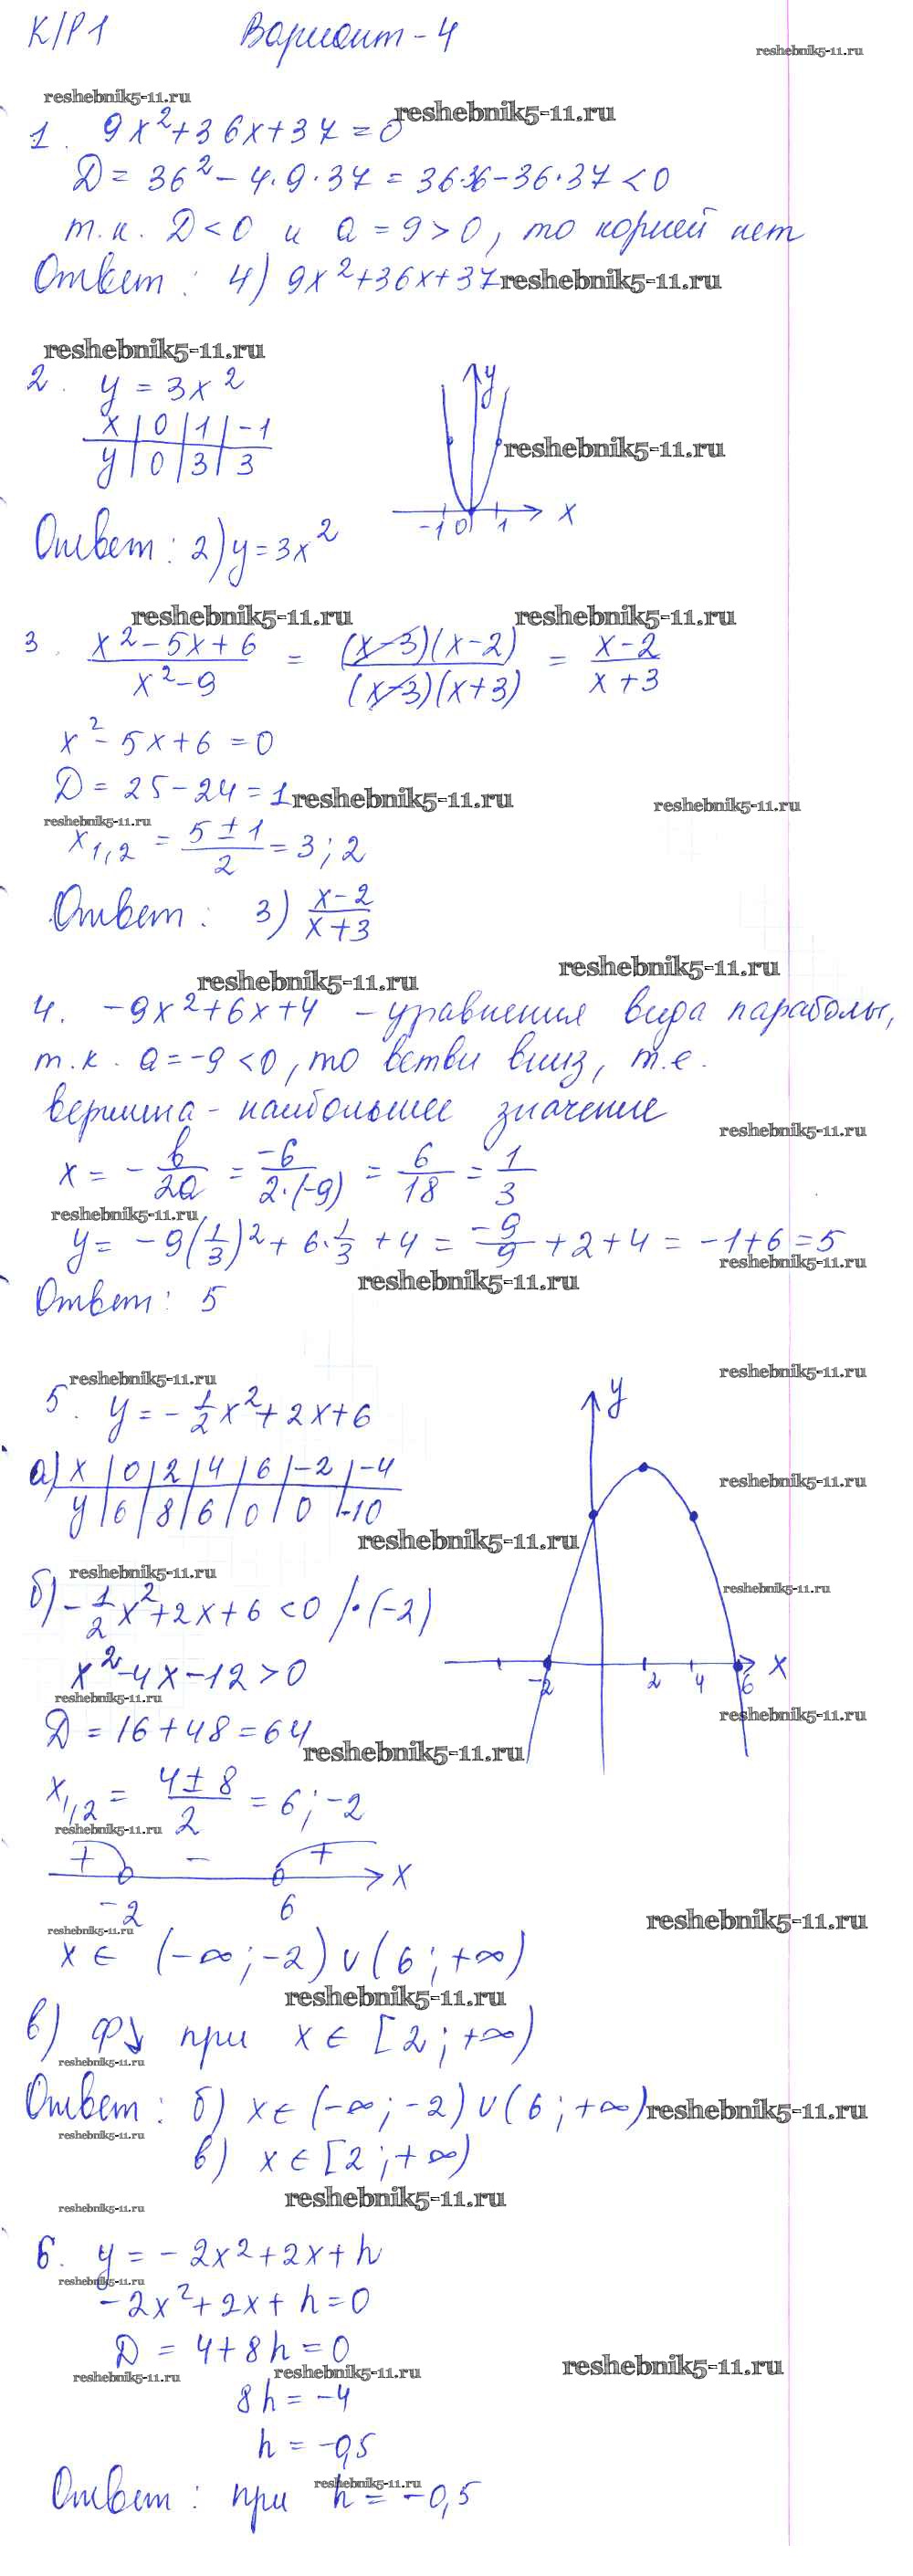 К/Р1 Вариант-4
reshebnik5-11.ru
reshebnik5-11.ru
reshebnik5-11.ru
1. 9x²+36x+37=0
D = 36² - 4·9·37 = 36·36-36·37 < 0
т.к. D < 0 и a = 9 > 0, то корней нет
Ответ: 4) 9x²+36x+37
reshebnik5-11.ru
reshebnik5-11.ru
2. y = 3x²
x | 0 | 1 | -1
y | 0 | 3 | 3
y
reshebnik5-11.ru
-1 0 1 x
Ответ: 2) y=3x²
reshebnik5-11.ru reshebnik5-11.ru
3. (x²-5x+6)/(x²-9) = ((x-3)(x-2))/((x-3)(x+3)) = (x-2)/(x+3)
x²-5x+6 = 0
D = 25-24 = 1
reshebnik5-11.ru
reshebnik5-11.ru
reshebnik5-11.ru
x1,2 = (5±1)/2 = 3; 2
Ответ: 3) (x-2)/(x+3)
reshebnik5-11.ru
reshebnik5-11.ru
4. -9x²+6x+4 - уравнения вида параболы,
т.к. a=-9<0, то ветви вниз, т.е.
вершина - наибольшее значение
reshebnik5-11.ru
x = -b/2a = -6/(2·(-9)) = 6/18 = 1/3
reshebnik5-11.ru
y = -9(1/3)²+6·1/3+4 = -9/9+2+4 = -1+6=5
reshebnik5-11.ru
reshebnik5-11.ru
Ответ: 5
reshebnik5-11.ru
reshebnik5-11.ru
5. y = -1/2x²+2x+6
а) x | 0 | 2 | 4 | 6 | -2 | -4
y | 6 | 8 | 6 | 0 | 0 | -10
y
reshebnik5-11.ru
reshebnik5-11.ru
reshebnik5-11.ru
reshebnik5-11.ru
б) -1/2x²+2x+6 <0 /·(-2)
x²-4x-12>0
-2 2 4 6 x
reshebnik5-11.ru
reshebnik5-11.ru
D = 16+48 = 64
reshebnik5-11.ru
x1,2 = (4±8)/2 = 6; -2
reshebnik5-11.ru
+ - + x
-2 6
reshebnik5-11.ru
reshebnik5-11.ru
x ∈ (-∞; -2) ∪ (6; +∞)
reshebnik5-11.ru
в) ф↘ при x ∈ [2; +∞)
reshebnik5-11.ru
Ответ: б) x∈(-∞; -2)∪(6; +∞)
reshebnik5-11.ru
reshebnik5-11.ru
в) x ∈ [2; +∞)
reshebnik5-11.ru
reshebnik5-11.ru
6. y = -2x²+2x+h
reshebnik5-11.ru
-2x²+2x+h=0
D = 4+8h=0
reshebnik5-11.ru
reshebnik5-11.ru
reshebnik5-11.ru
8h = -4
h = -0,5
reshebnik5-11.ru
Ответ: при h = -0,5